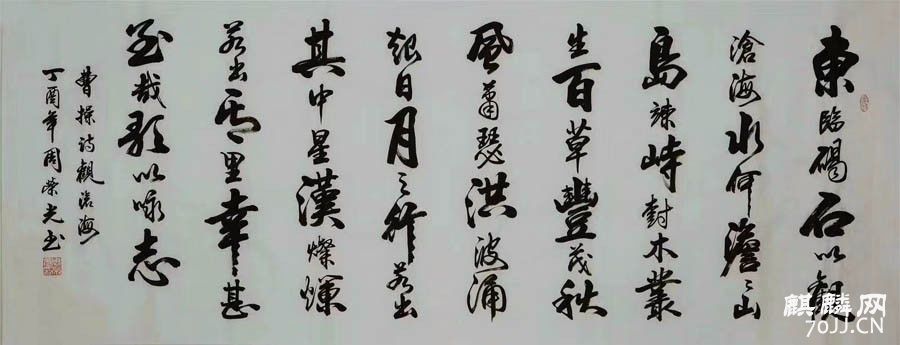 東臨碣石以觀
滄海水何澹〻山
島竦峙樹木叢
生百草豐茂秋
風蕭瑟洪波涌
起日月之行若出
其中星漢燦爛
若出其里幸〻甚
至哉歌以咏志
曹操詩觀滄海
丁酉年周榮光書
麒麟网
70JJ.CN